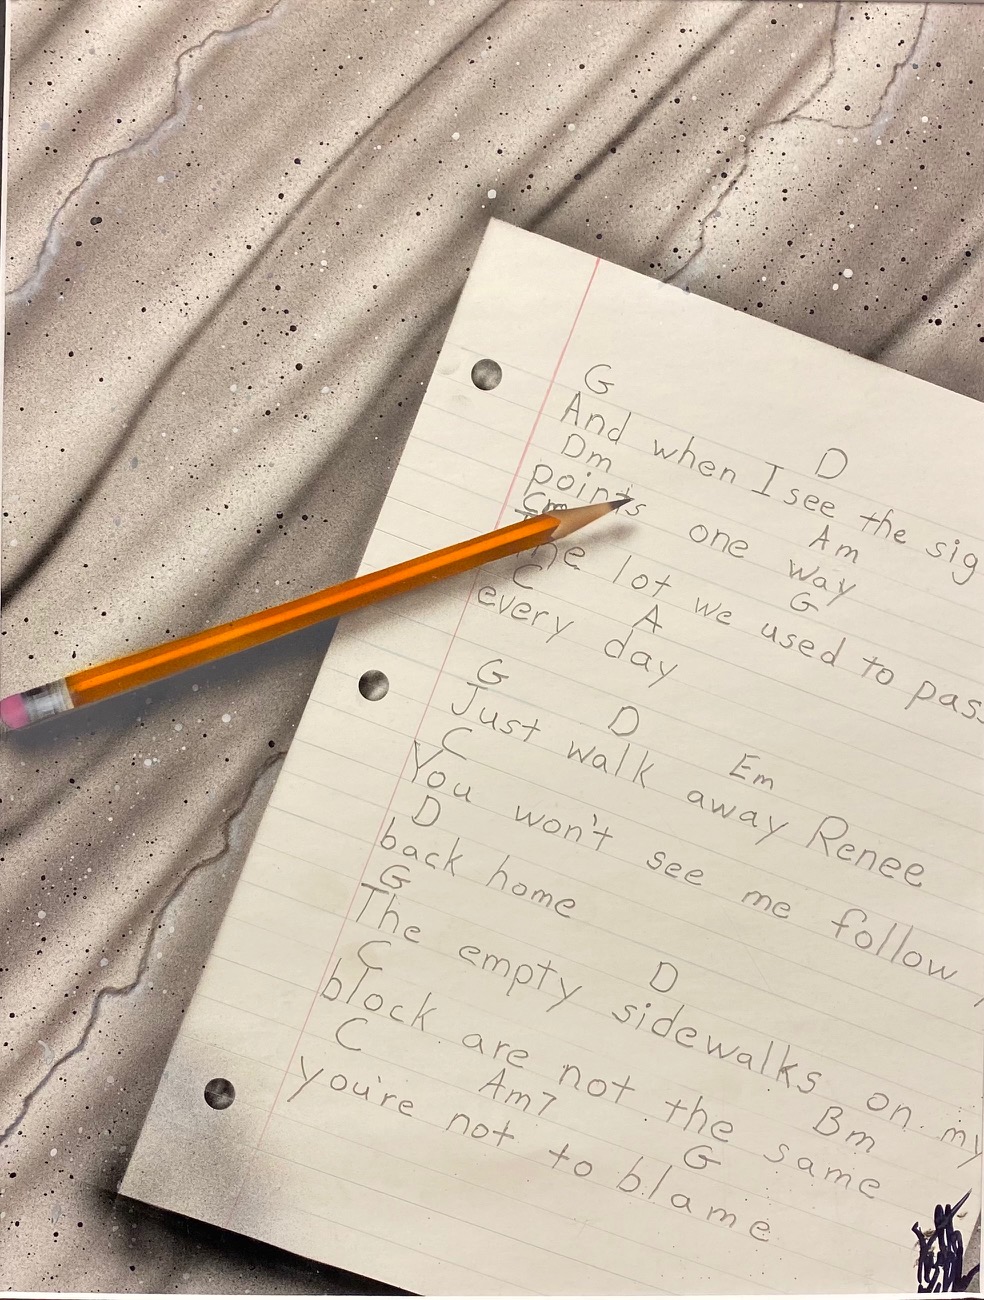 G D
And when I see the sig
Dm Am
points one way
Cm G
The lot we used to pass
C A
every day
G D Em
Just walk away Renee
C
You won't see me follow
D
back home
G D
The empty sidewalks on my
C Bm
block are not the same
C Am7 G
you're not to blame